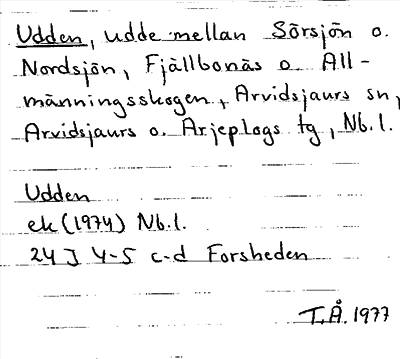 Udden, udde mellan Sörsjön o.
Nordsjön, Fjällbonäs o. All-
männingsskogen, Arvidsjaurs sn,
Arvidsjaurs o. Arjeplogs tg, Nb.l.
Udden
ek (1974) Nb.l.
24 J 4-5 c-d Forsheden
T.Å. 1977